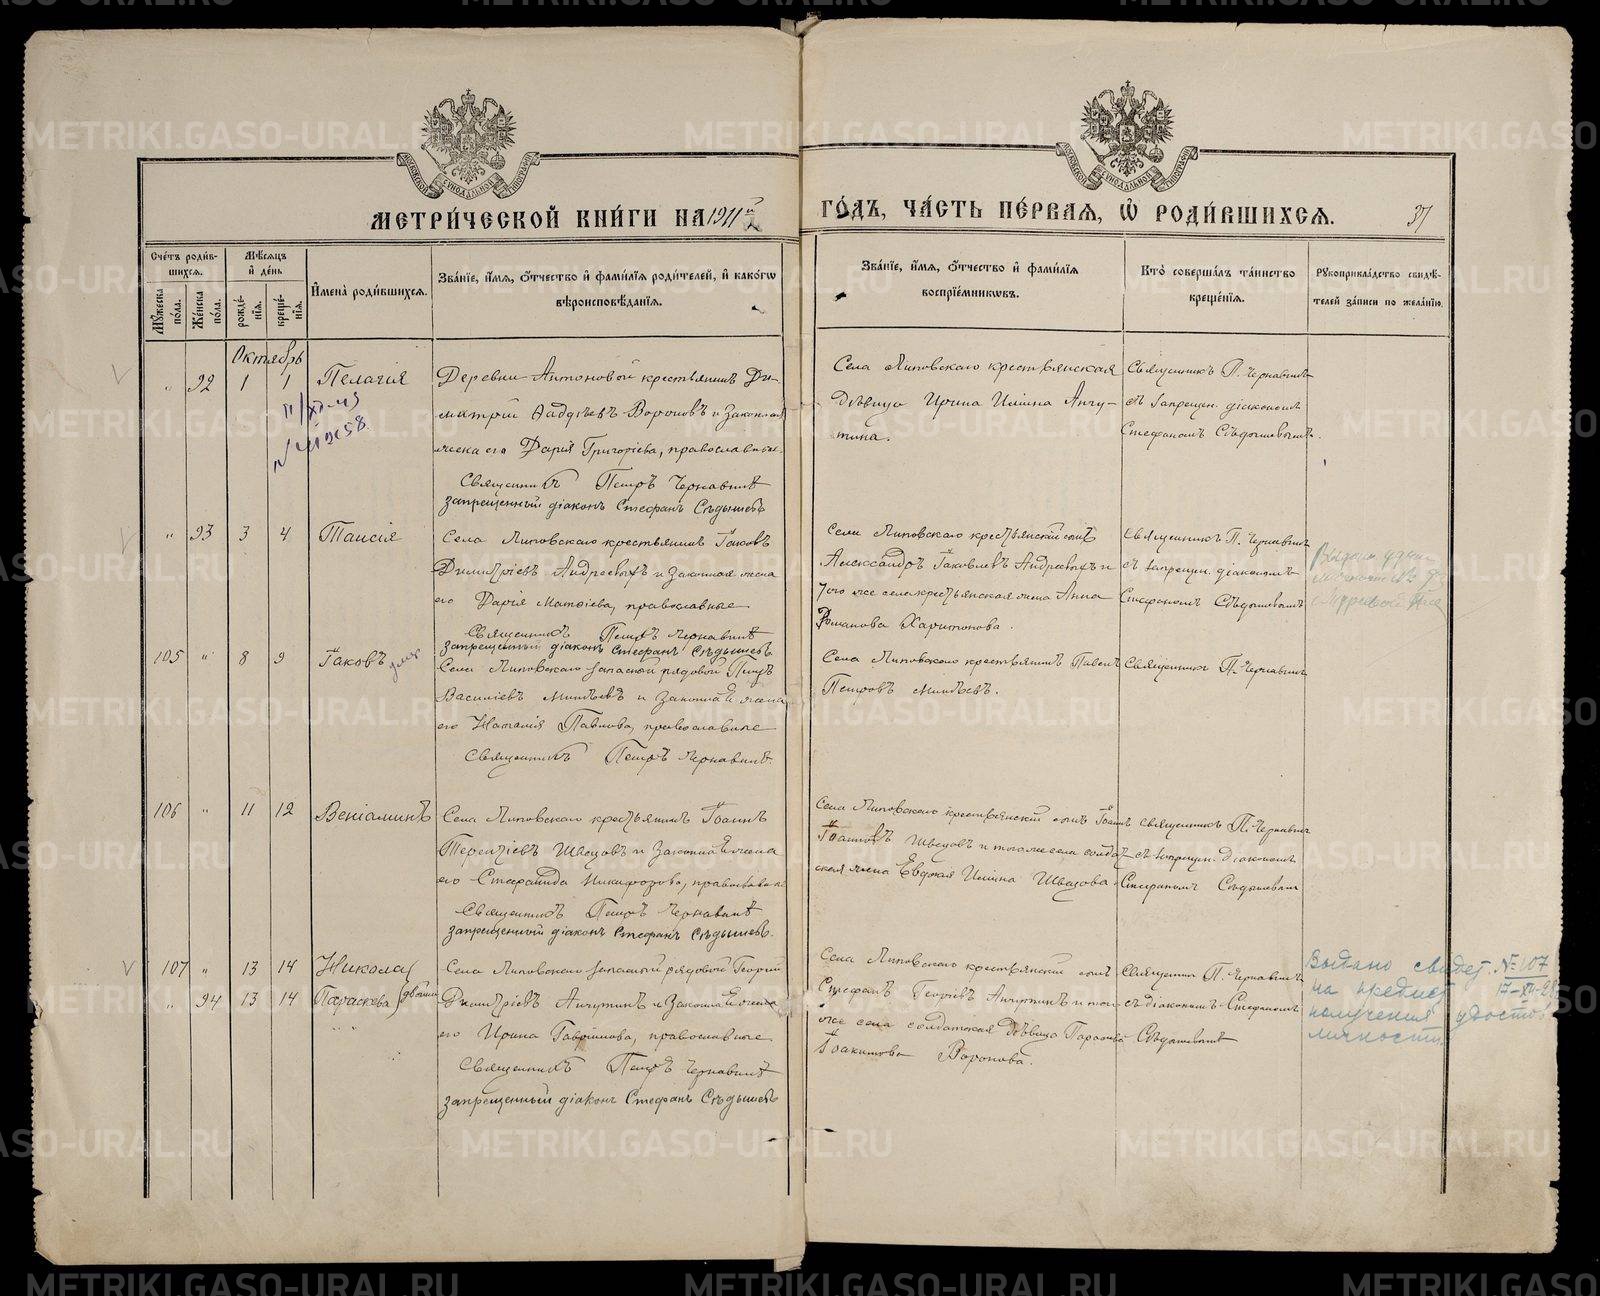 МЕТРИЧЕСКОЙ КНИГИ НА 1911й
ГОДЪ, ЧАСТЬ ПЕРВАЯ, Ѡ РОДИВШИХСЯ.
37
Счетъ родив-
шихся.
Мужеска
пола.
Женска
пола.
Мѣсяцъ
и день
рожде-
нія.
креще-
нія.
Имена родившихся.
Званіе, имя, отчество и фамилія родителей, и какогѡ
вѣроисповѣданія.
Званіе, имя, отчество и фамилія
воспріемниковъ.
Кто совершалъ таинство
крещенія.
Рукоприкладство свидѣ-
телей записи по желанію.
Октябрь
" 92 1 1 Пелагія
Деревни Антоновой крестьянинъ Ди-
митрій Авдѣевъ Вороновъ и законная
жена его Дарія Григоріева, православные.
Священникъ Петръ Чернавинъ
запрещенный діаконъ Стефанъ Сѣдышевъ
Села Липовскаго крестьянская
дѣвица Ирина Иліина Анчу-
тина.
Священникъ П. Чернавинъ
съ запрещен. діакономъ
Стефаномъ Сѣдышевымъ.
" 93 3 4 Таисія
Села Липовскаго крестьянинъ Іаковъ
Димитріевъ Андреевыхъ и законная жена
его Дарія Матѳіева, православные
Священникъ Петръ Чернавинъ
запрещенный діаконъ Стефанъ Сѣдышевъ
Села Липовскаго крестьянскій сынъ
Александръ Іаковлевъ Андреевыхъ и
того же села крестьянская жена Анна
Романова Харитонова.
Священникъ П. Чернавинъ
съ запрещен. діакономъ
Стефаномъ Сѣдышевымъ
105 " 8 9 Іаковъ
умер
Села Липовскаго запасной рядовой Петръ
Василіевъ Минѣевъ и законная жена
его Наталія Павлова, православные
Священникъ Петръ Чернавинъ.
Села Липовскаго крестьянинъ Павелъ
Петровъ Минѣевъ.
Священникъ П. Чернавинъ
106 " 11 12 Веніаминъ
Села Липовскаго крестьянинъ Іоаннъ
Терентіевъ Швецовъ и законная жена
его Стефанида Никифорова, православные
Священникъ Петръ Чернавинъ
запрещенный діаконъ Стефанъ Сѣдышевъ.
Села Липовскаго крестьянскій сынъ Іоаннъ
Іоанновъ Швецовъ и того же села солдат-
ская жена Евдокія Иліина Швецова.
Священникъ П. Чернавинъ
съ запрещен. діакономъ
Стефаномъ Сѣдышевымъ
107 " 13 14 Николай
" 94 13 14 Параскева
двойни
Села Липовскаго запасный рядовой Георгій
Димитріевъ Анчутинъ и законная жена
его Ирина Гавріилова, православные
Священникъ Петръ Чернавинъ
запрещенный діаконъ Стефанъ Сѣдышевъ
Села Липовскаго крестьянскій сынъ
Стефанъ Георгіевъ Анчутинъ и того
же села солдатская дѣвица Параскева
Іоакимова Воронова.
Священник П. Чернавинъ
съ діакономъ Стефаномъ
Сѣдышевымъ
Выдано свидет. № 107
на предмет 17-XII-28
получения удостов
личности.
METRIKI.GASO-URAL.RU